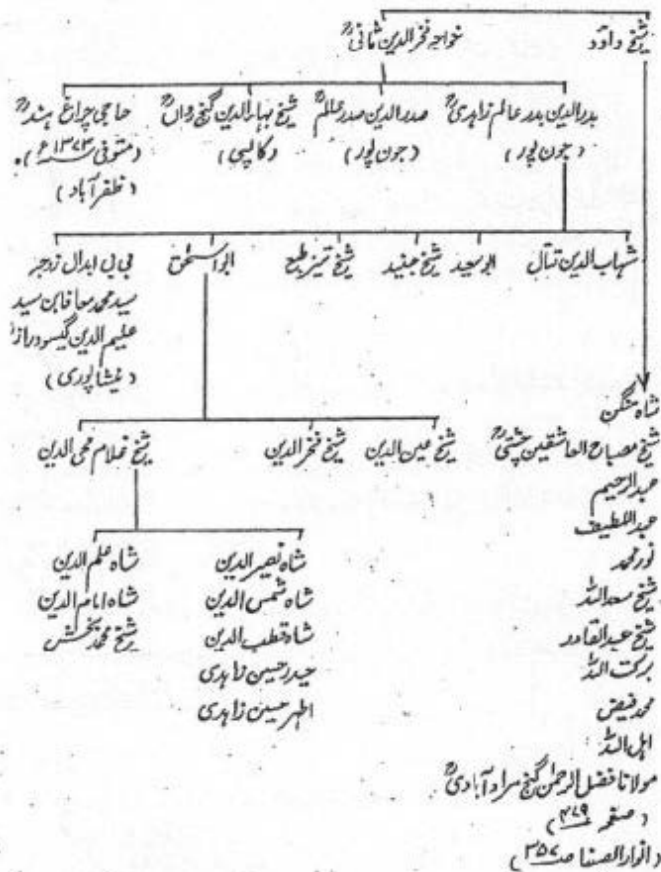 شیخ داؤد
خواجہ فخرالدین ثانیؒ
بدرالدین بدر عالم زاہدیؒ
(جون پور)
صدرالدین صدر عالمؒ
(جون پور)
شیخ بہارالدین گنج رواںؒ
(کالپی)
حاجی چراغ ہندؒ
(متوفی ۱۳۷۳ء)
(ظفر آباد)
شہاب الدین قتال
ابوسعید
شیخ جنید
شیخ تیز طبع
ابواسحٰق
بی بی ابدال زوجہ
سید محمد معافا بن سید
علیم الدین گیسودراز
(نیشاپوری)
شیخ معین الدین
شیخ فخرالدین
شیخ غلام محی الدین
شاہ نصیرالدین
شاہ شمس الدین
شاہ قطب الدین
حیدر حسین زاہدی
اظہر حسین زاہدی
شاہ علم الدین
شاہ امام الدین
شیخ محمد بخش
شاہ منگن
شیخ مصباح العاشقین چشتیؒ
عبدالرحیم
عبداللطیف
نور محمد
شیخ سعد اللہ
شیخ عبدالقادر
برکت اللہ
محمد فیض
اہل اللہ
مولانا فضل الرحمٰن گنج مرادآبادیؒ
(صفحہ ۴۷۹)
(انوار الصفا صـ ۳۵۷)